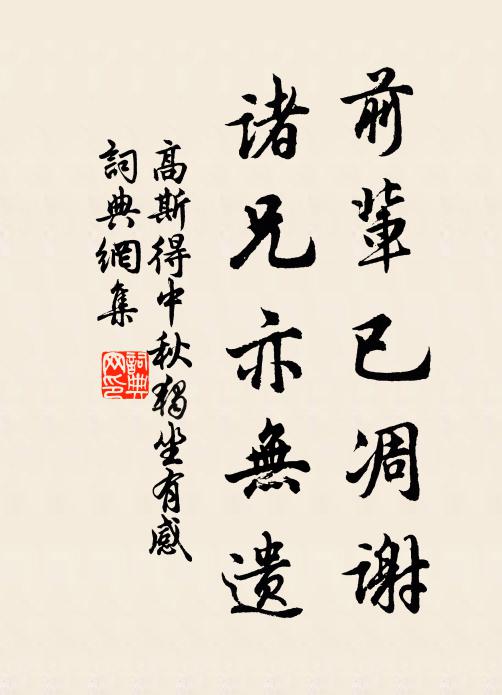 前輩已凋謝
诸兄亦無遗
高斯得中秋獨坐有感
詞典網集
詞典
网印